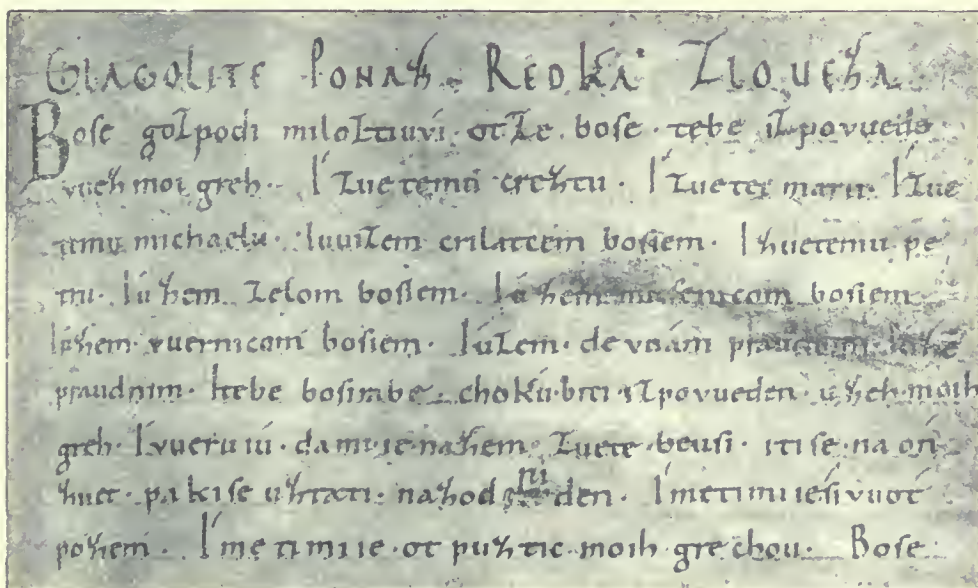 GLAGOLITE PONAZ REDKA ZLOUEZA.
Boſe gozpodi miloztiuvi. otze. boſe. tebe izpovuede.
vuez moi greh. I zuetemu creztu. I zuetei marii. I zue
temu michaelu. Iuuizem crilatcem boſiem. I zuetemu pe
tru. Iúzem zelom boſiem. Iúzem muſenicom boſiem
Iúzem vuernicom boſiem. Iúzem. devuám praudnim. Iúzem
praudnim. Itebe boſirabe. chokú. biti. izpovueden. uzeh. moih
greh. I vueruiú. da mi. ie. na zem. zuete. beuſi. iti ſe. na oń
zuet. paki ſe uztati. na zodni den. Imeti mi ie ſivuot
pozem. Imeti mi ie. otpuztic. moih. grechou. Boſe.